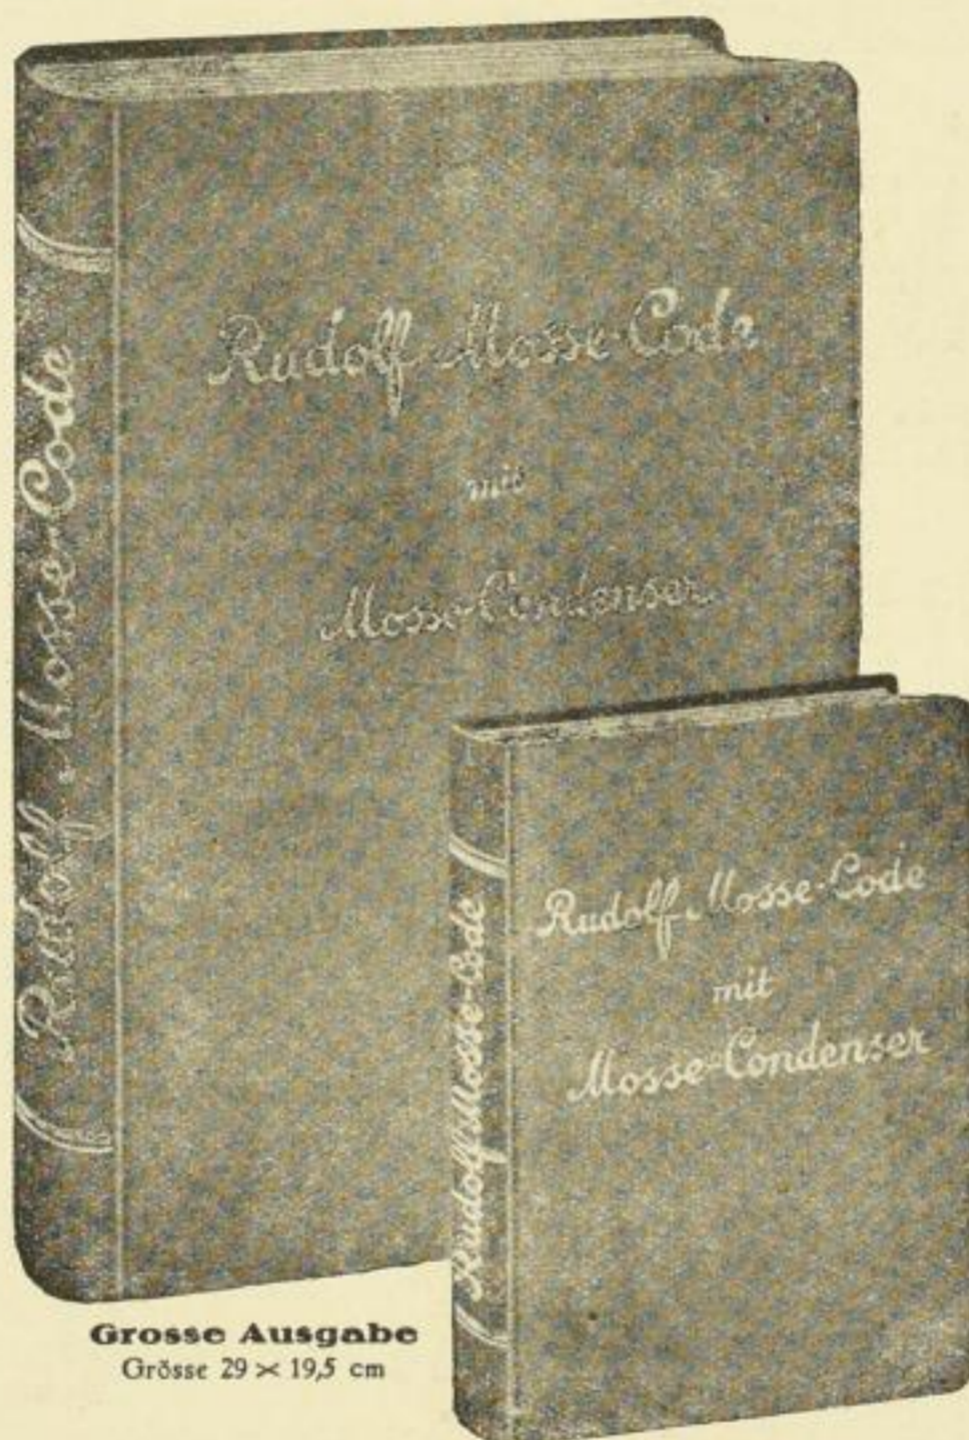 Rudolf Mosse-Code
Rudolf Mosse-Code
mit
Mosse-Condenser
Rudolf Mosse-Code
Rudolf Mosse-Code
mit
Mosse-Condenser
Grosse Ausgabe
Grösse 29 × 19,5 cm